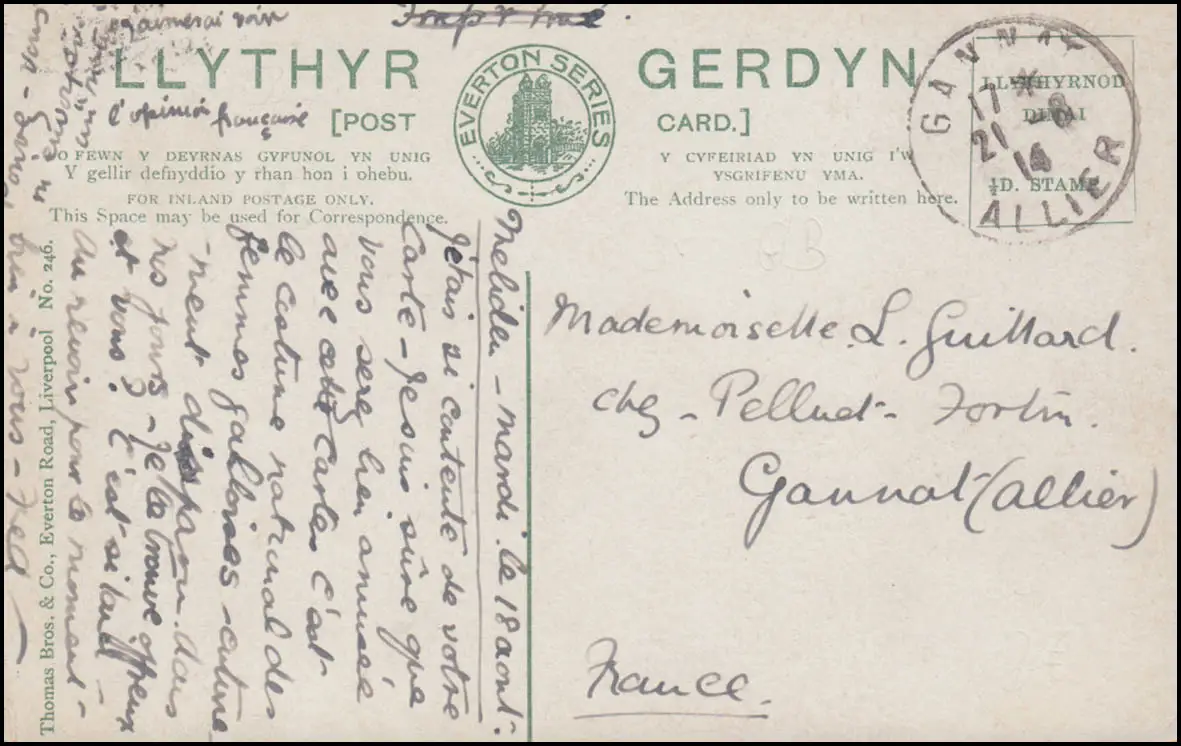 Imprimé.
LLYTHYR GERDYN
EVERTON SERIES
[POST CARD.]
O FEWN Y DEYRNAS GYFUNOL YN UNIG
Y gellir defnyddio y rhan hon i ohebu.
FOR INLAND POSTAGE ONLY.
This Space may be used for Correspondence.
Y CYFEIRIAD YN UNIG I'W
YSGRIFENU YMA.
The Address only to be written here.
LLYTHYRNOD
DIMAI
½D. STAMP
GANNAT
17 *
21 - 8
14
ALLIER
Mademoiselle L. Guillard.
chez - Pelluet - Fortin.
Gannat (Allier)
France.
mardi. le 18 aout.
Jétais si contente de votre
Carte - Je suis sûre que
vous serez bien amusée
avec cette carte c'est
le costume national des
femmes galloises - cature
- ment disparu dans
nos jours - Je le trouve affreux
et vous? C'est si laid -
Au revoir pour le moment -
bien à vous -
j'aimerai voir
l'opinion française
Thomas Bros. & Co., Everton Road, Liverpool No. 246.